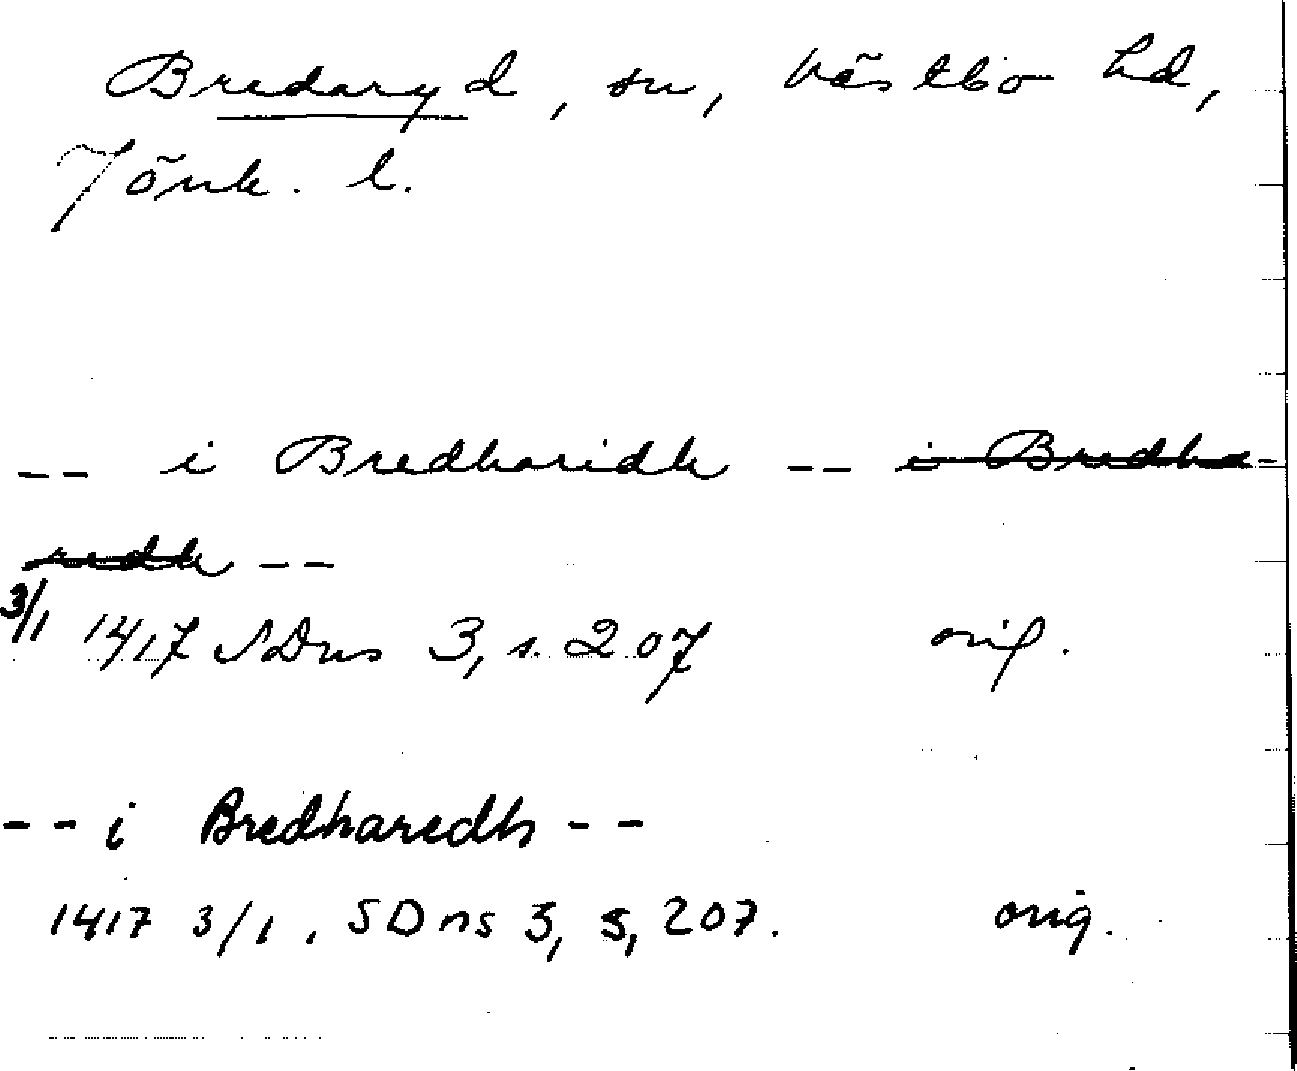 Bredaryd, sn, Västbo hd,
Jönk. l.
-- i Bredharidh -- i Bredha-
redh --
3/1 1417 SDns 3, s. 207 orig.
-- i Bredharedh --
1417 3/1. SDns 3, s, 207. orig.